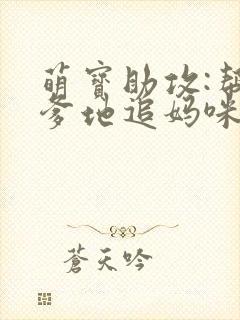 萌寶助攻:幫
爹地追媽咪
蒼天吟